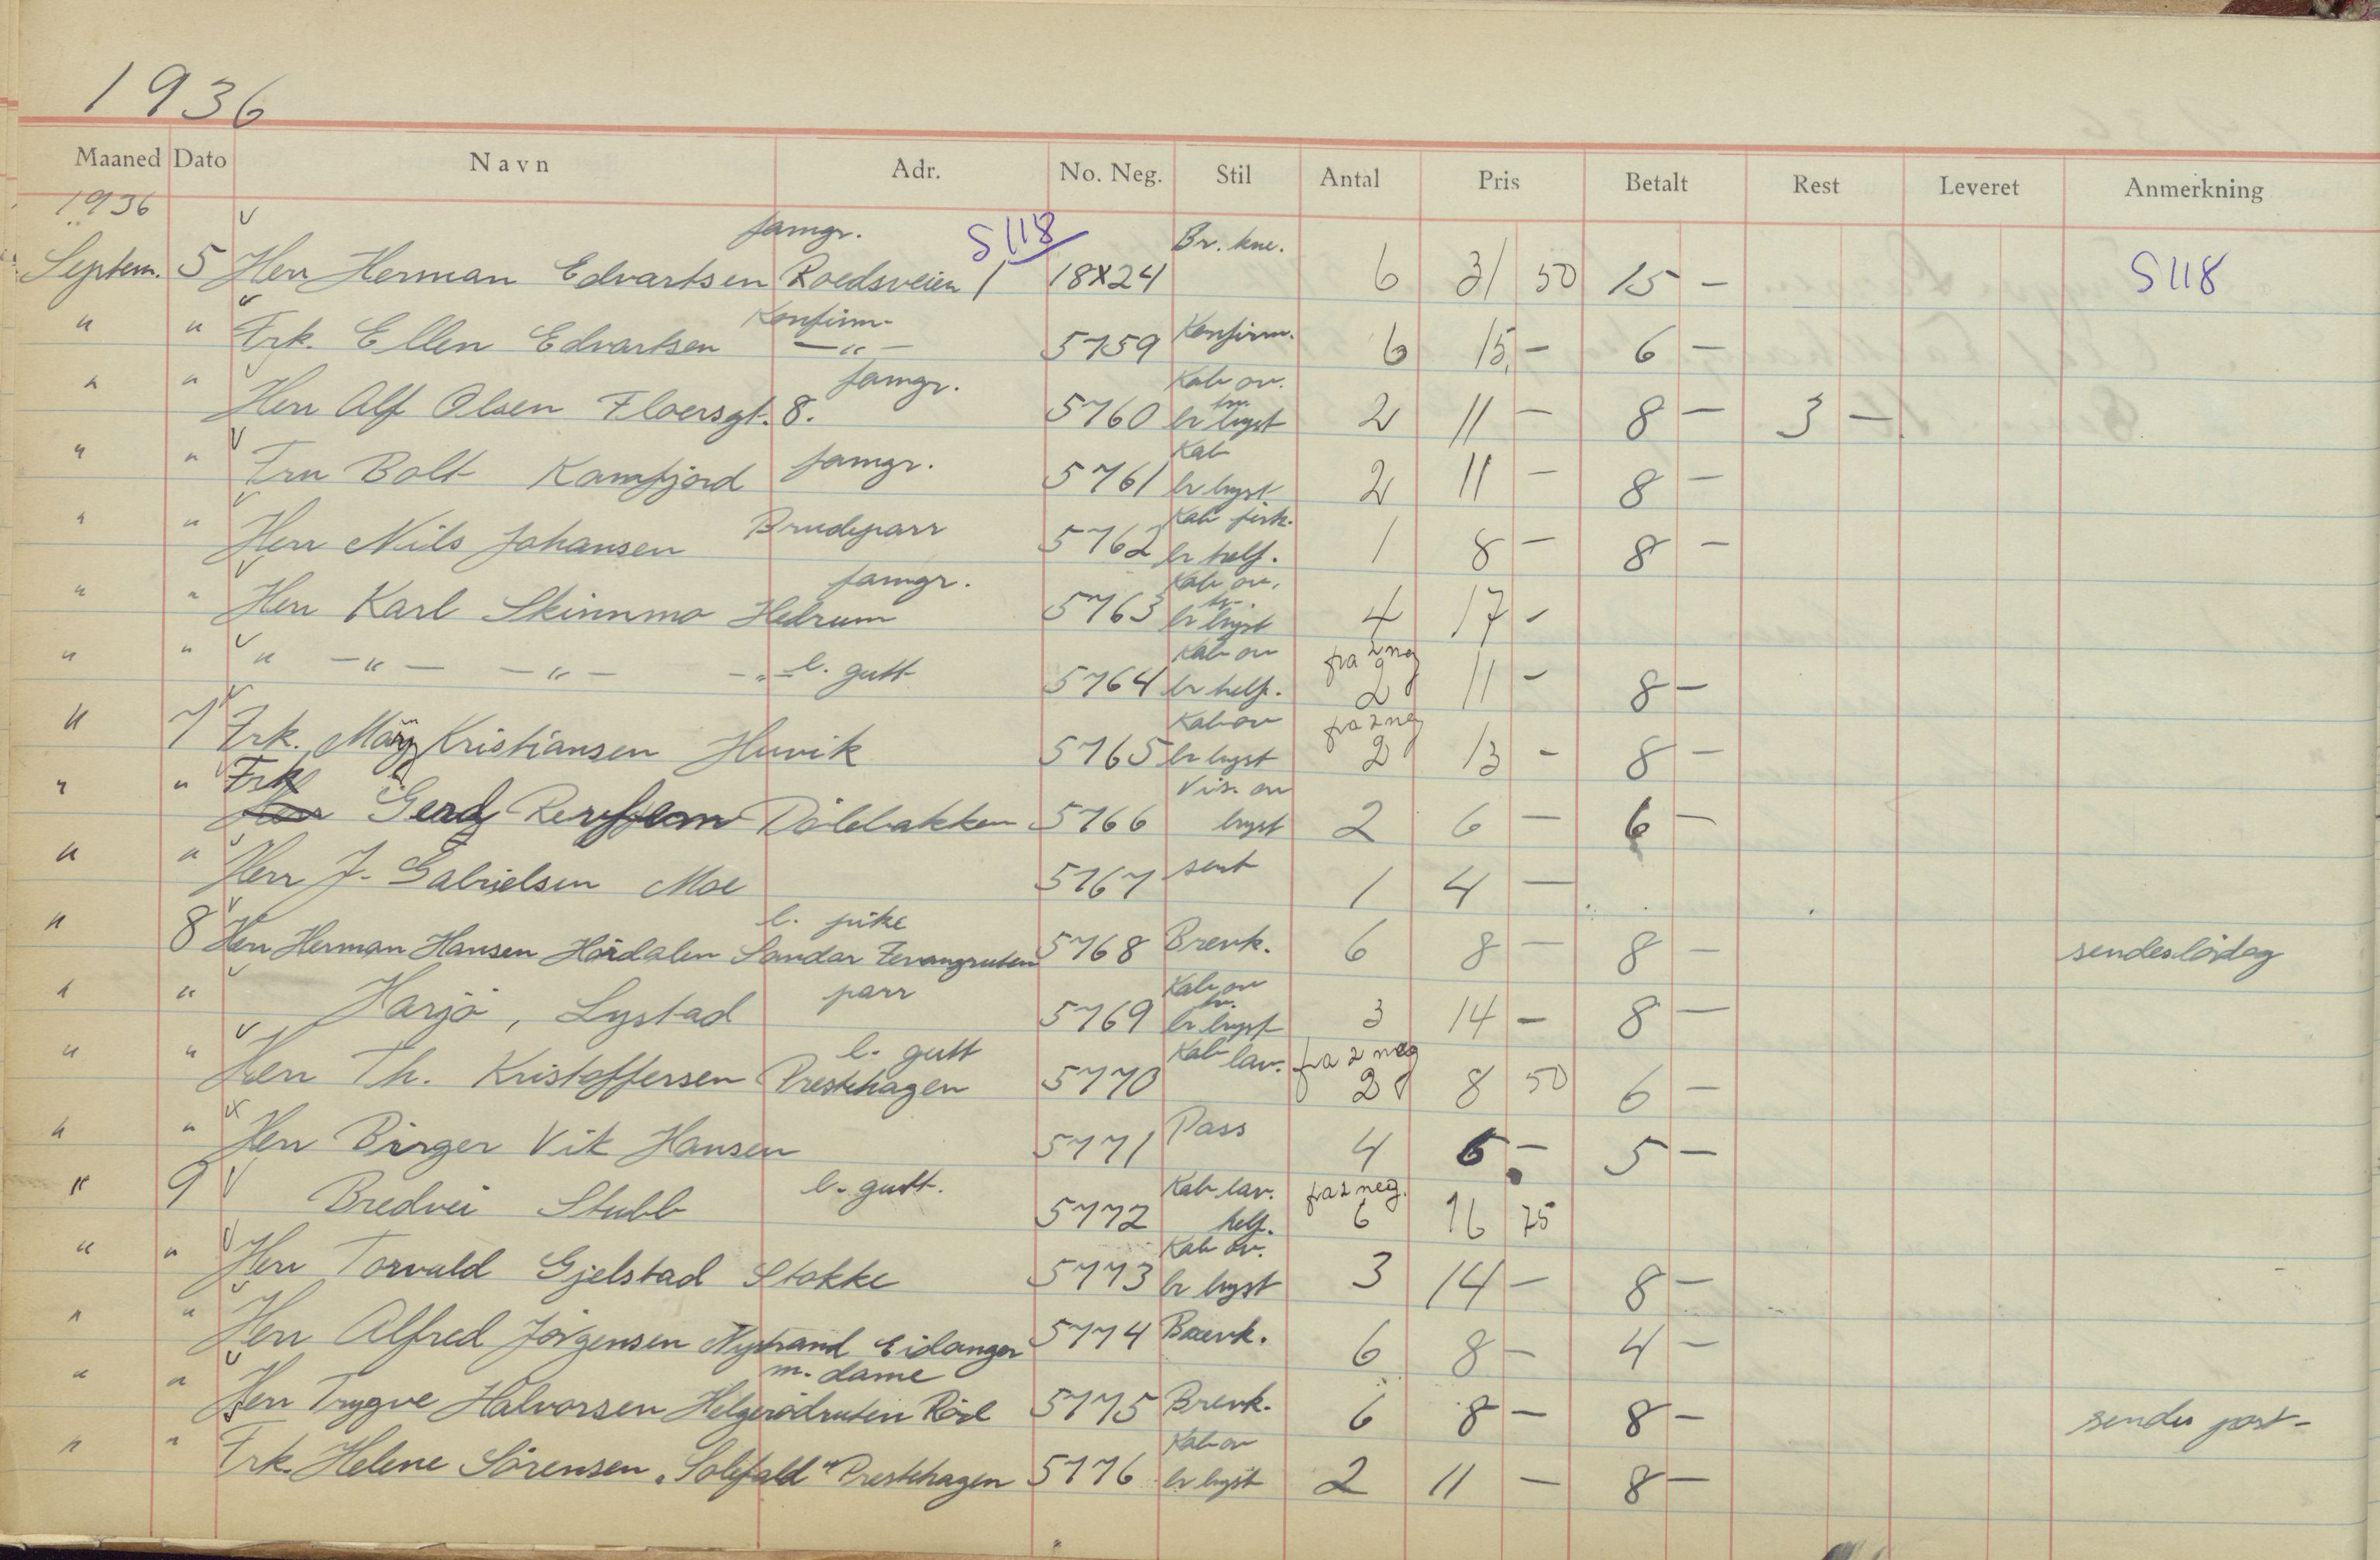 1936
Maaned Dato Navn Adr. No. Neg. Stil Antal Pris Betalt Rest Leveret Anmerkning
1936
famgr. S118 Br. kne.
Septem. 5 Herr Herman Edvartsen Roedsveien 1 18x24 6 31 50 15 – S118
Konfirm. Konfirm.
" " Frk. Ellen Edvartsen –"– 5759 6 15,– 6 –
famgr. Kab ov.
" " Herr Alf Olsen Floersgt. 8. 5760 br. bryst 2 11 – 8 – 3 –
famgr. Kab
" " Fru Bolt Kamfjord 5761 br bryst 2 11 – 8 –
Brudeparr Kab firk.
" " Herr Nils Johansen 5762 br helf. 1 8 – 8 –
famgr. Kab ov.
" " Herr Karl Skinnmo Hedrum 5763 br bryst 4 17 –
Kab ov fra 2 neg
" " " –"– –"– –"– l. gutt 5764 br helf. 2 11 – 8 –
Kab ov fra 2 neg
" 7 Frk. Mary Kristiansen Huvik 5765 br bryst 2 13 – 8 –
Frk Vis. ov
" " Gerd Dölebakken 5766 bryst 2 6 – 6 –
" " Herr J. Gabrielsen Moe 5767 sort 1 4 –
l. pike
" 8 Herr Herman Hansen Hördalen Sandar 5768 Brevk. 6 8 – 8 – sendes lördag
parr Kab ov
" " Harjo, Lystad 5769 br bryst 3 14 – 8 –
l. gutt Kab lav. fra 2 neg
" " Herr Th. Kristoffersen Prestehagen 5770 2 8 50 6 –
" " Herr Birger Vik Hansen 5771 Pass 4 6 – 5 –
l. gutt. Kab lav. fra 2 neg.
" 9 Bredvei Stubb 5772 helf. 6 16 75
Kab ov.
" " Herr Torvald Gjelstad Stokke 5773 br bryst 3 14 – 8 –
" " Herr Alfred Jörgensen Nystrand Eidanger 5774 Brevk. 6 8 – 4 –
m. dame
" " Herr Trygve Halvorsen Helgerödruten Röd 5775 Brevk. 6 8 – 8 – sendes post–
Kab ov
" " Frk. Helene Sörensen "Solefald" Prestehagen 5776 br bryst 2 11 – 8 –